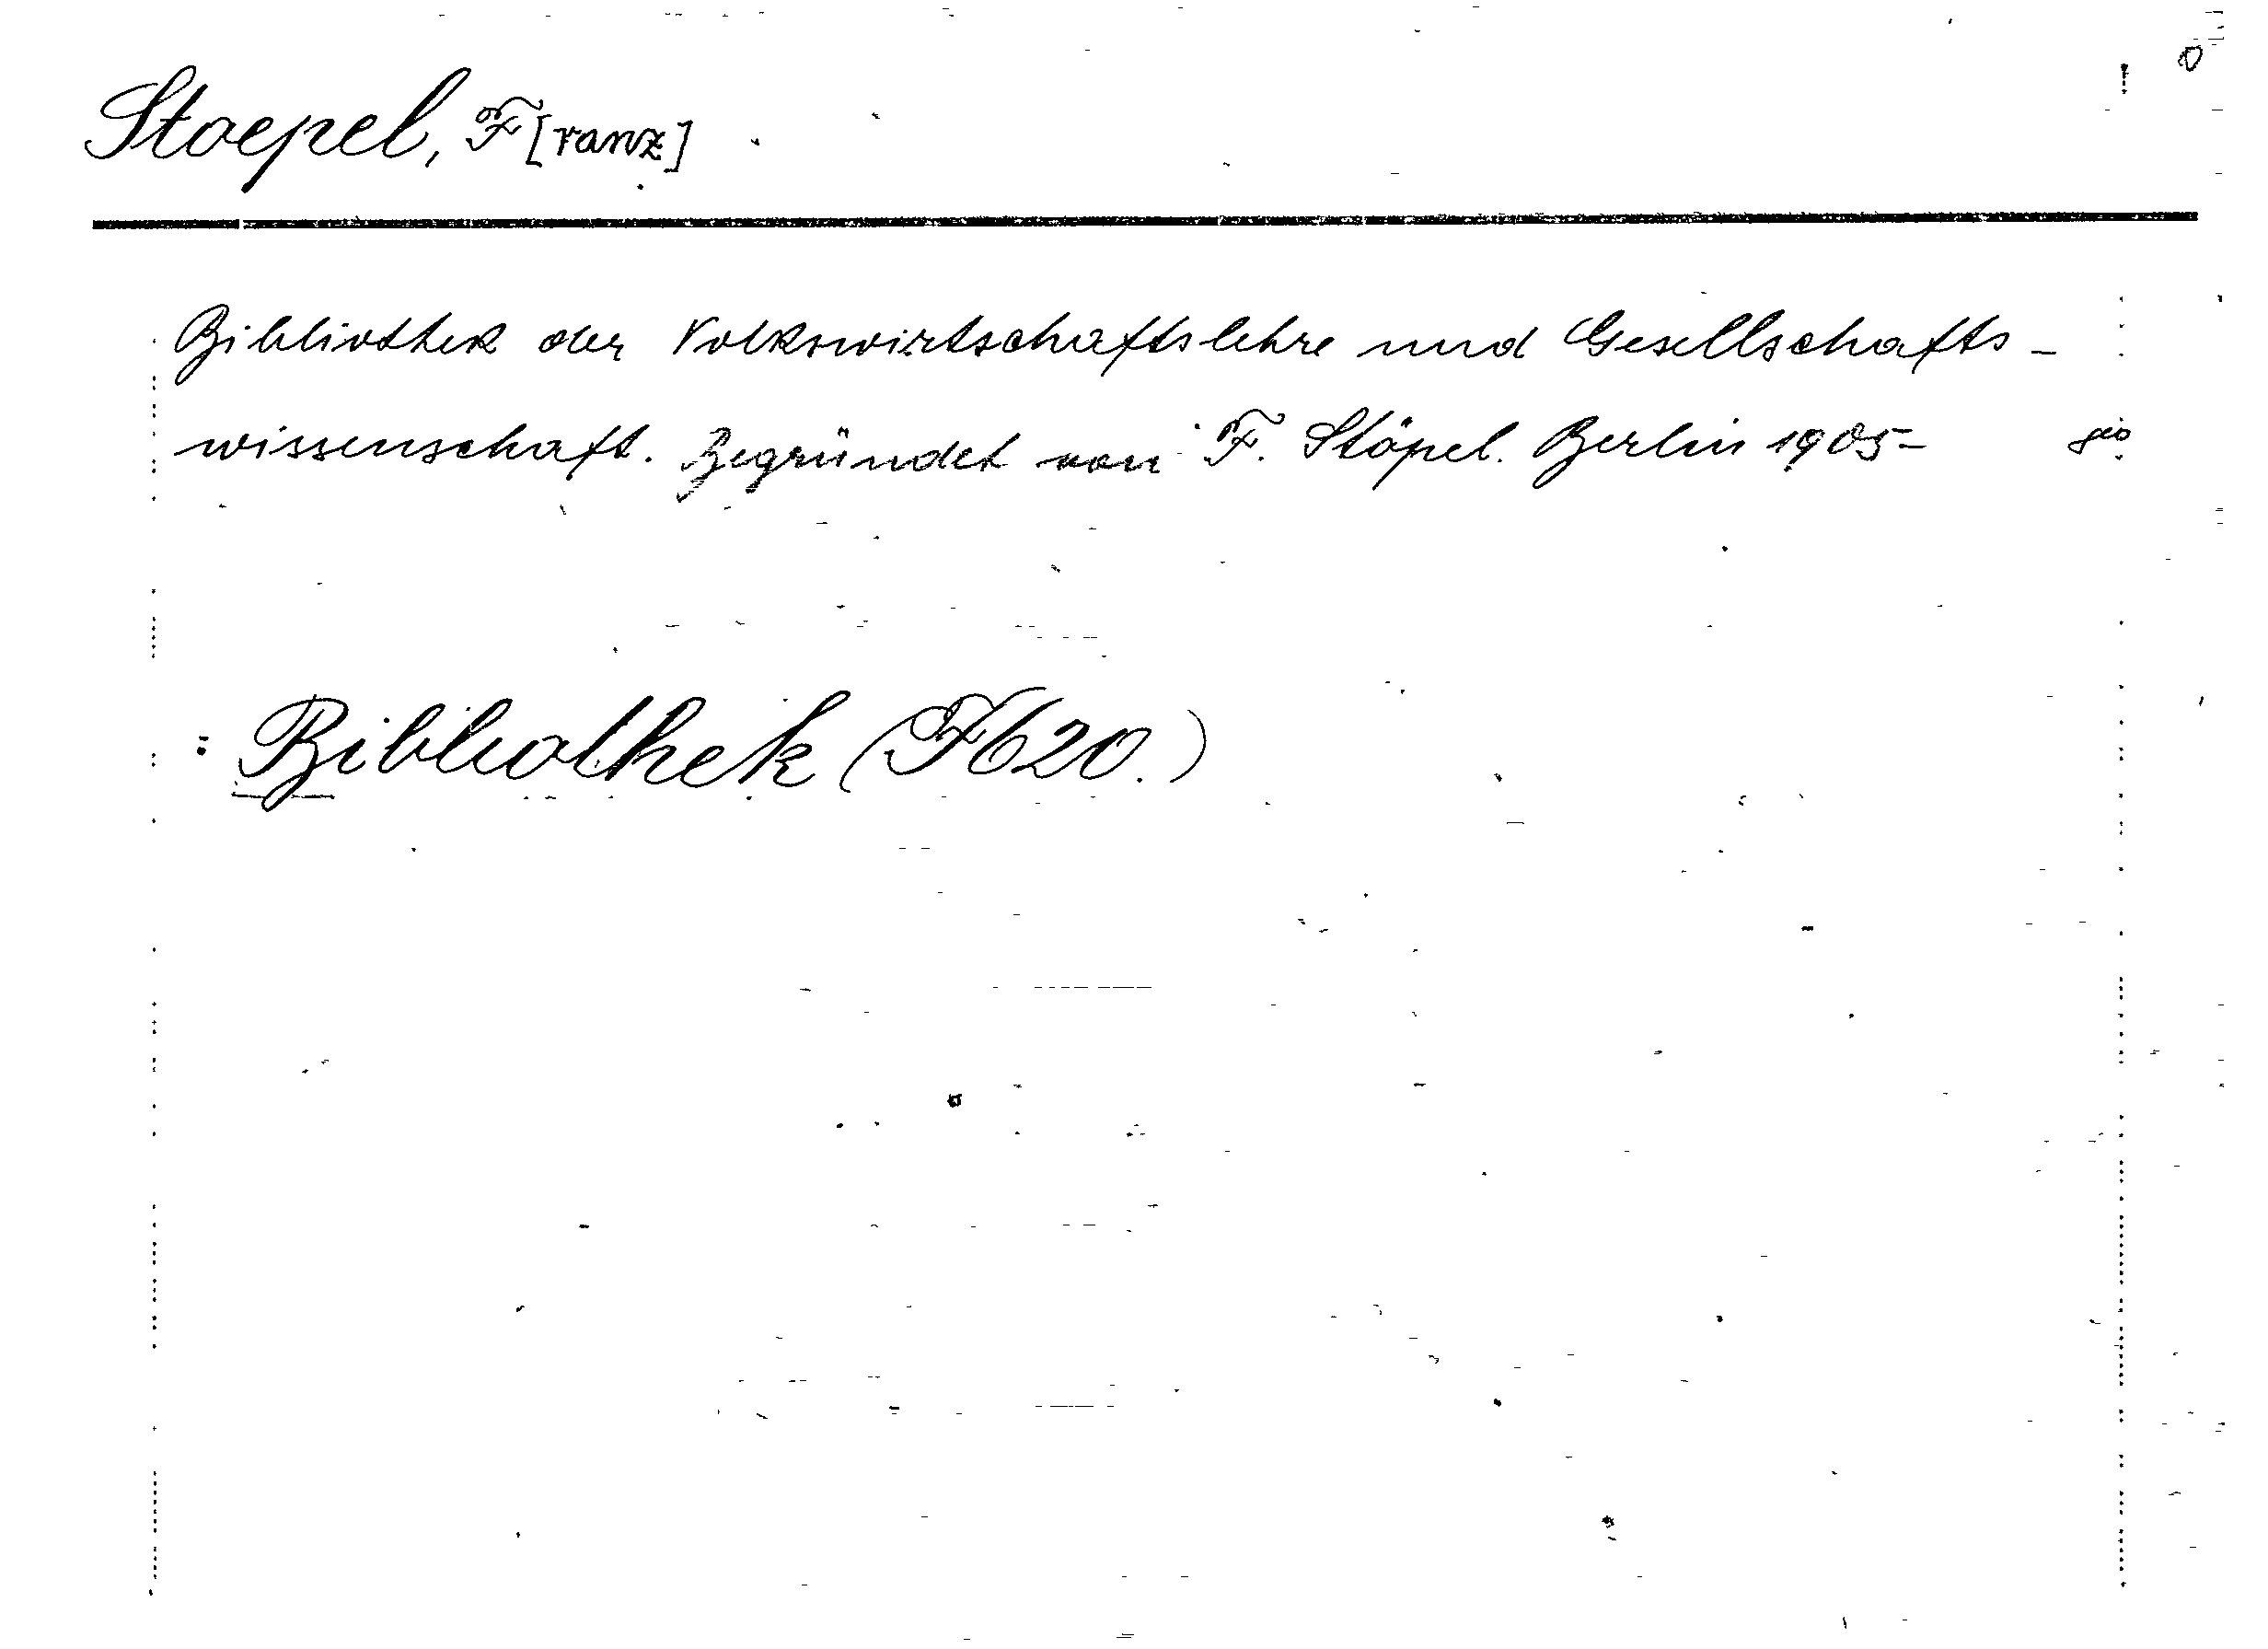 Stoepel, F[ranz]
Bibliothek der Volkswirtschaftslehre und Gesellschafts-
wissenschaft. Begründet von F. Stöpel. Berlin 1905- 8°
: Bibliothek (F620.)